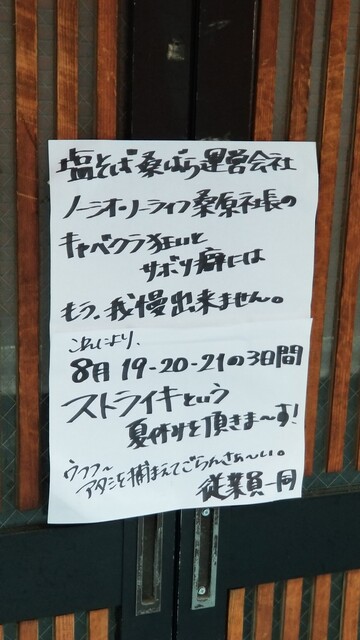 塩そば桑ばら運営会社
ノーシオ・ノーライフ桑原社長の
キャバクラ狂いと
サボり癖には
もう、我慢出来ません。
これにより、
8月19-20-21の3日間
ストライキという
夏休みを頂きま〜す!
ウフフ〜
アタシを捕まえてごらんさぁ〜い。
従業員一同